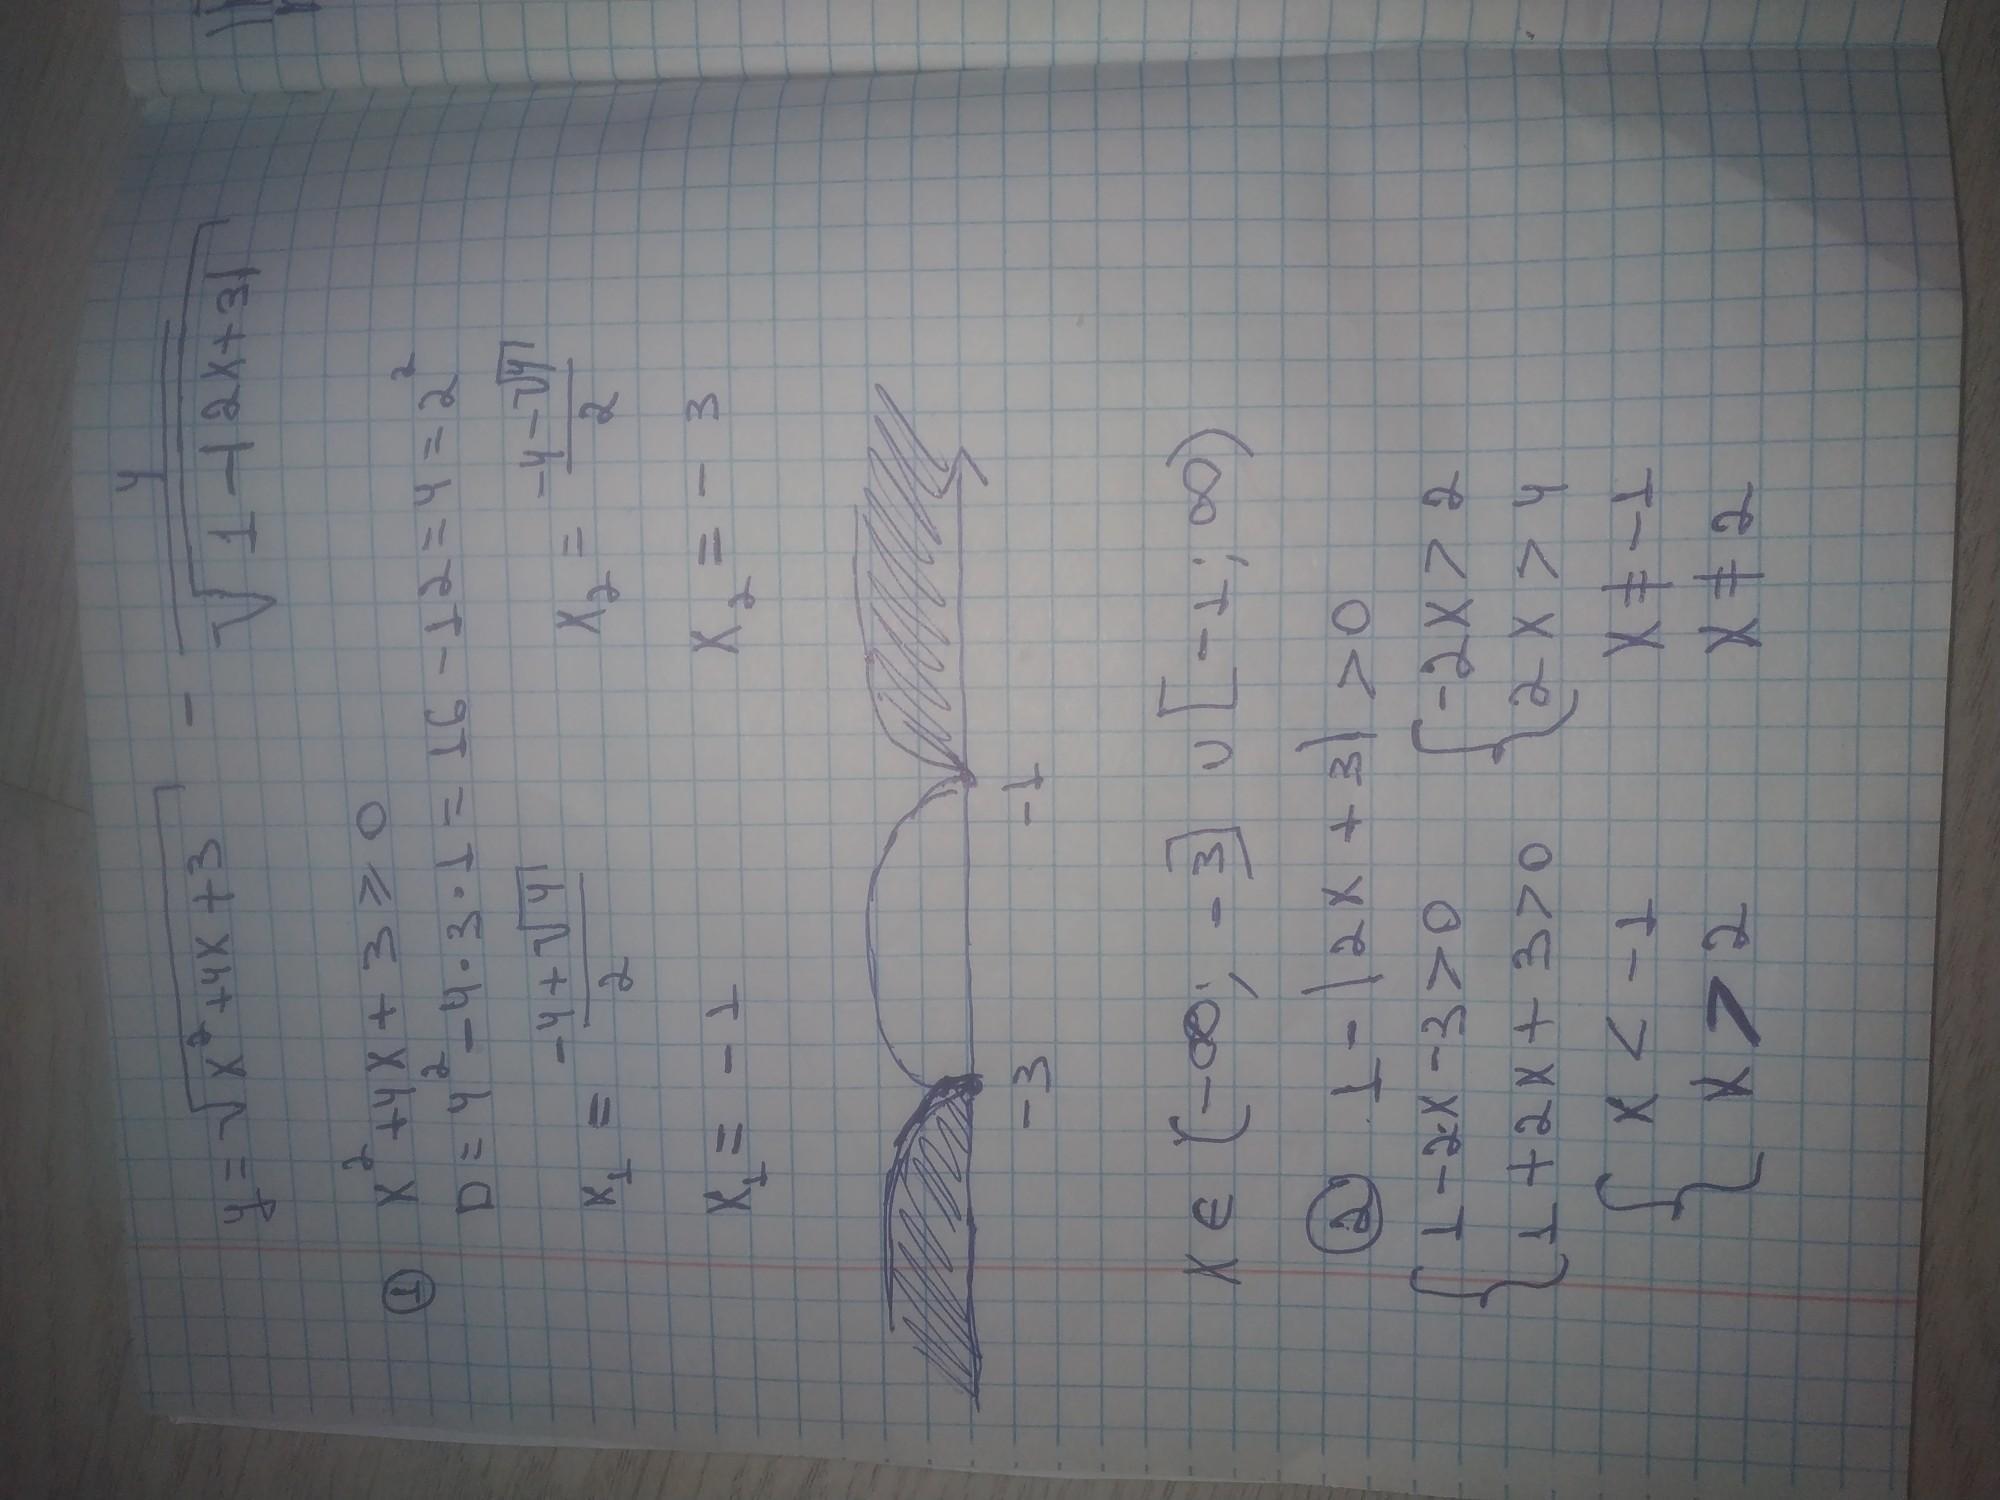 y = √(x² + 4x + 3) - 4/√(1 - |2x + 3|)
① x² + 4x + 3 ≥ 0
D = 4² - 4 · 3 · 1 = 16 - 12 = 4 = 2²
x₁ = (-4 + √4)/2 x₂ = (-4 - √4)/2
x₁ = -1 x₂ = -3
-3 -1
x ∈ (-∞; -3] ∪ [-1; ∞)
② 1 - |2x + 3| > 0
{ 1 - 2x - 3 > 0 { -2x > 2
{ 1 + 2x + 3 > 0 { 2x > 4
{ x < -1 x ≠ -1
{ x > 2 x ≠ 2